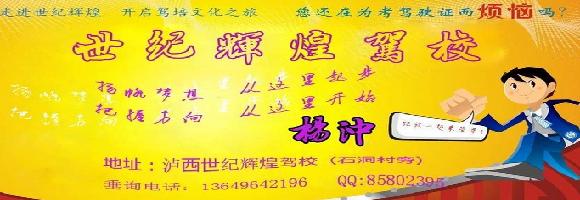 走进世纪辉煌 开启驾培文化之旅 您还在为考驾驶证而烦恼吗?
世纪辉煌驾校
扬帆梦想 从这里起步
把握方向 从这里开始
杨冲
地址:泸西世纪辉煌驾校(石洞村旁)
垂询电话:13649642196 QQ:85802395